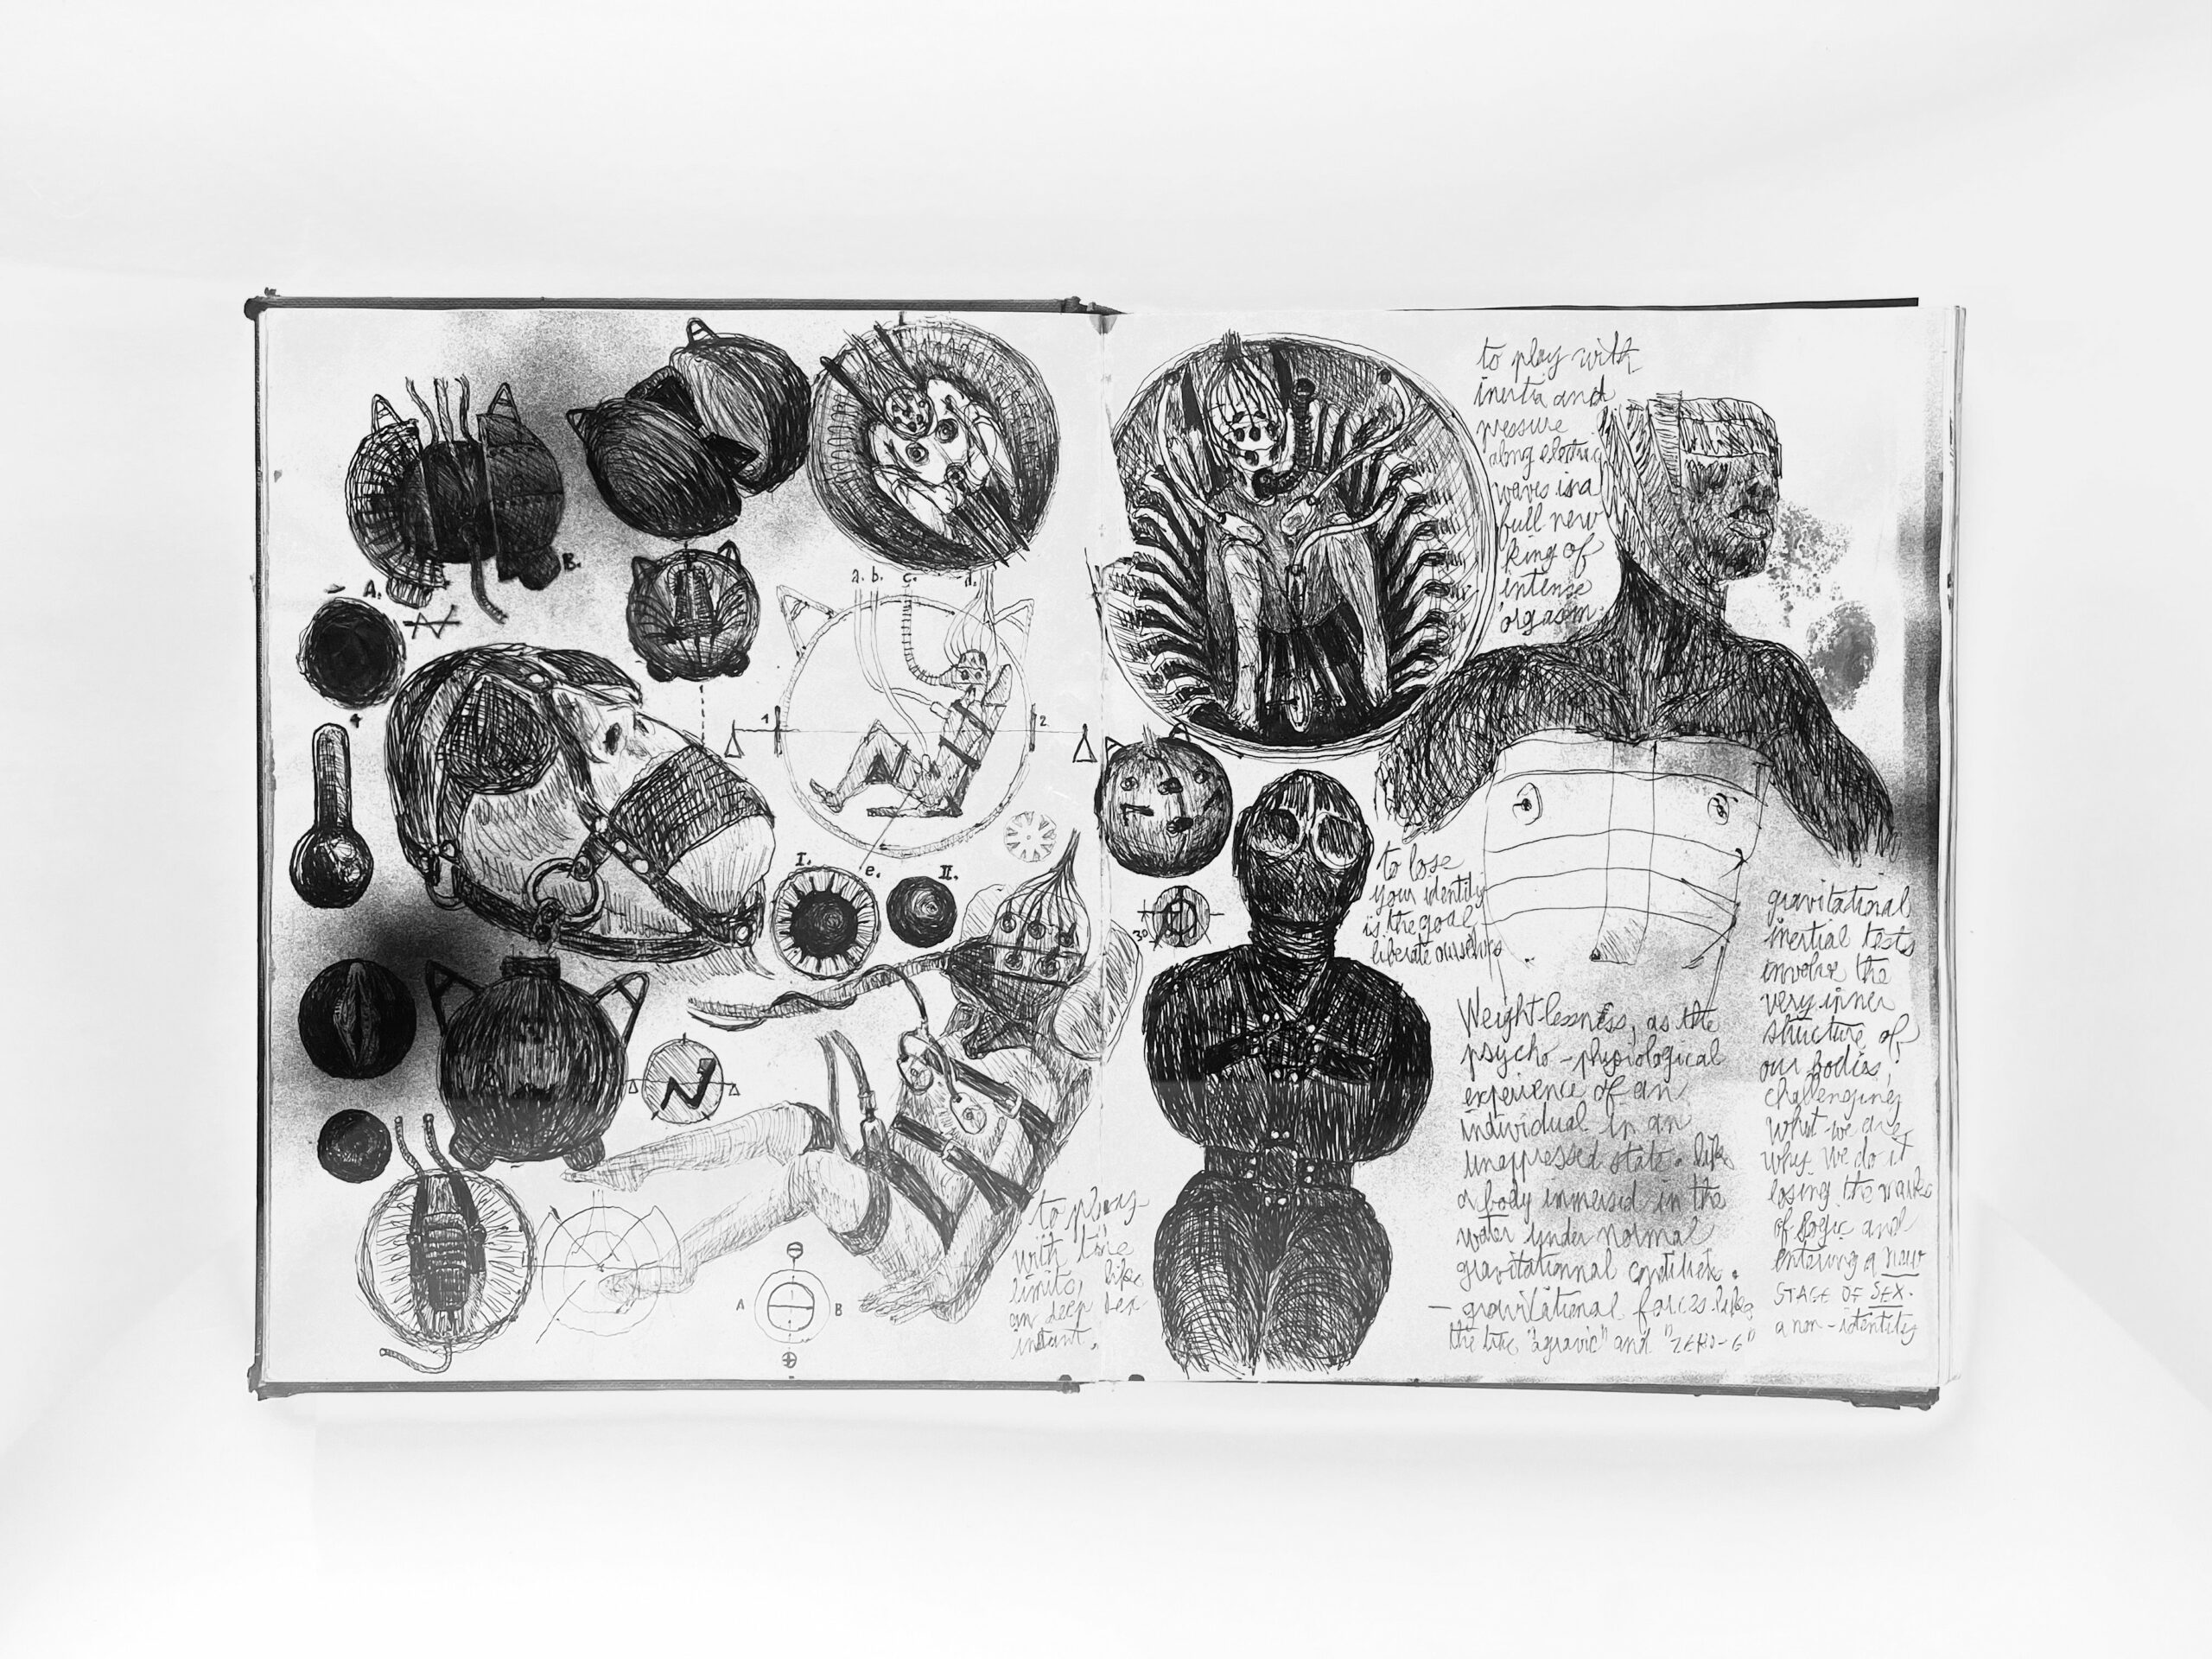 A.
B.
a. b. c. d.
1
2
e.
I.
II.
A
B
to play
with the
limits, like
an deep sex
instant.
to play with
inertia and
pressure
along electric
waves is a
full new
king of
intense
orgasm
30
to lose
your identity
is the goal
liberate ourselves
Weight-lessness, as the
psycho-physiological
experience of an
individual in an
unoppressed state. like
a body immersed in the
water under normal
gravitationnal
- gravitational forces like
the "agravic" and "ZERO-G"
gravitational
inertial tests
involve the
very inner
structure of
our bodies,
challenging
what we are,
why we do it
losing the
of logic and
entering a new
STAGE OF SEX.
a non-identity